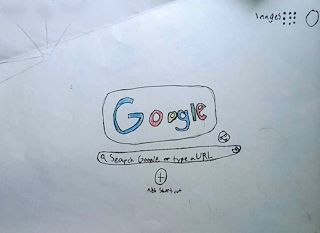 Images
Google
Search Google or type a URL
Add Shortcut